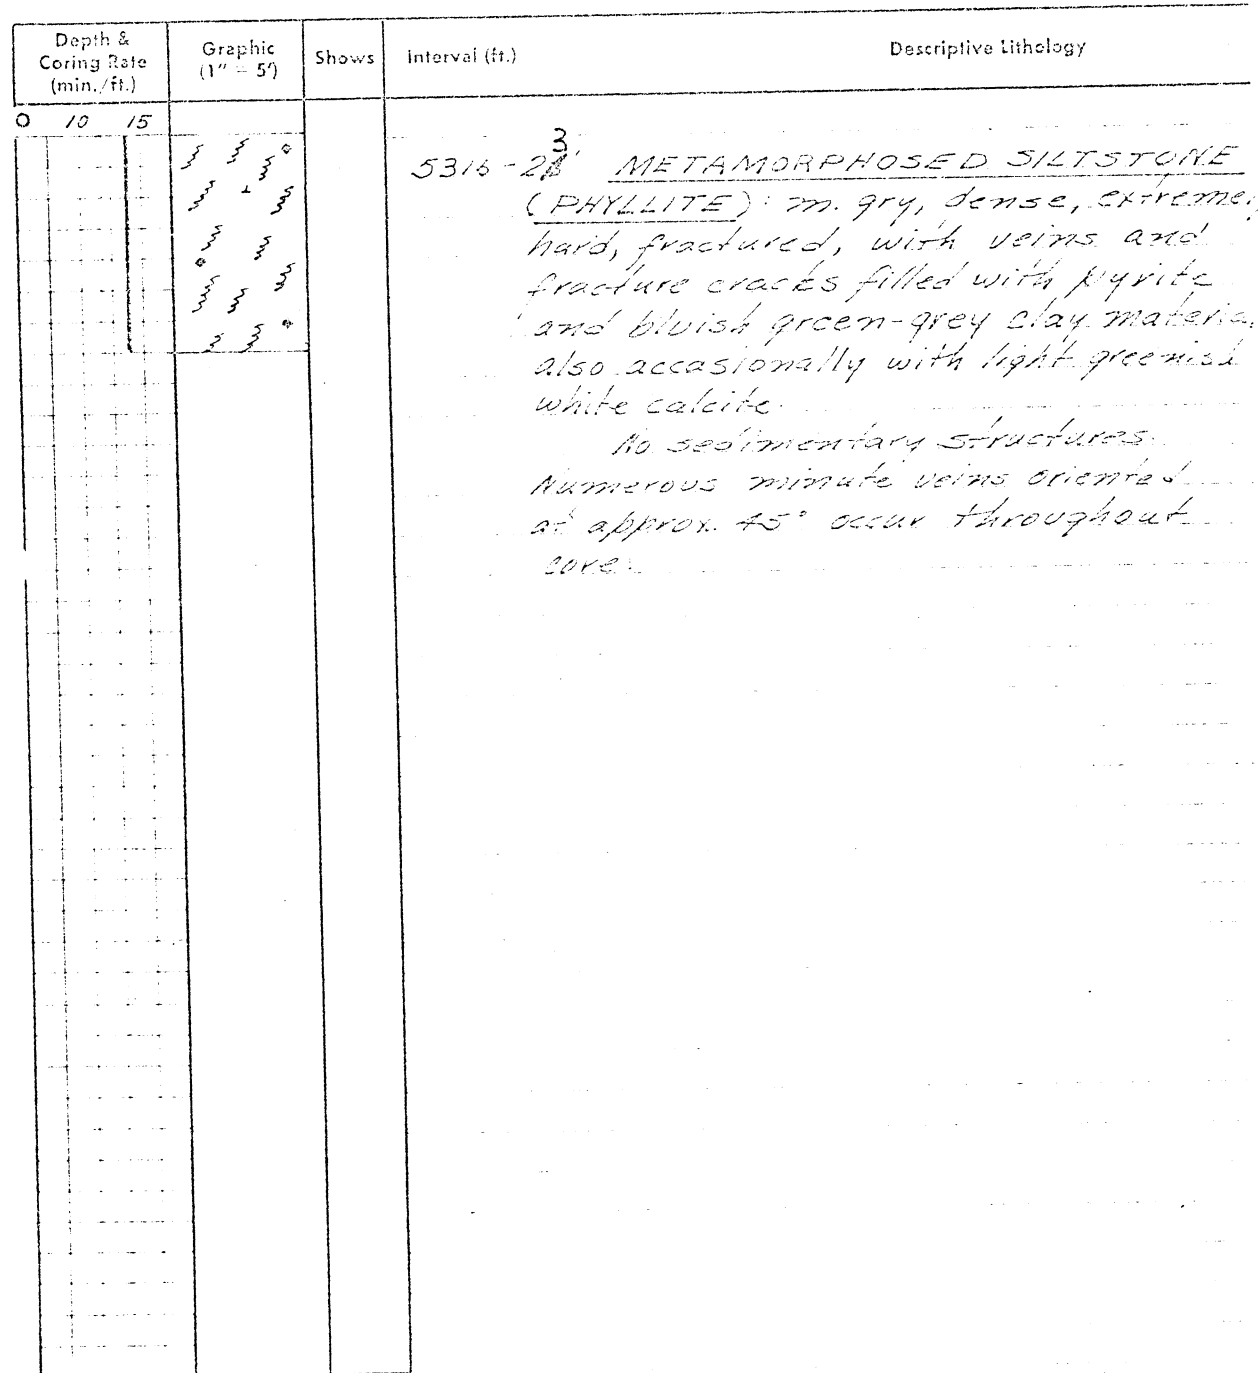 Depth &
Coring Rate
(min./ft.)
Graphic
(1" = 5')
Shows
Interval (ft.)
Descriptive Lithology
0 10 15
3
5316-2 METAMORPHOSED SILTSTONE
(PHYLLITE): m. gry, dense, extreme
hard, fractured, with veins and
fracture cracks filled with pyrite
and bluish green-grey clay materia
also accasionally with light greenish
white calcite.
No sedimentary structures.
Numerous minute veins oriented
at approx. 45° occur throughout
core.